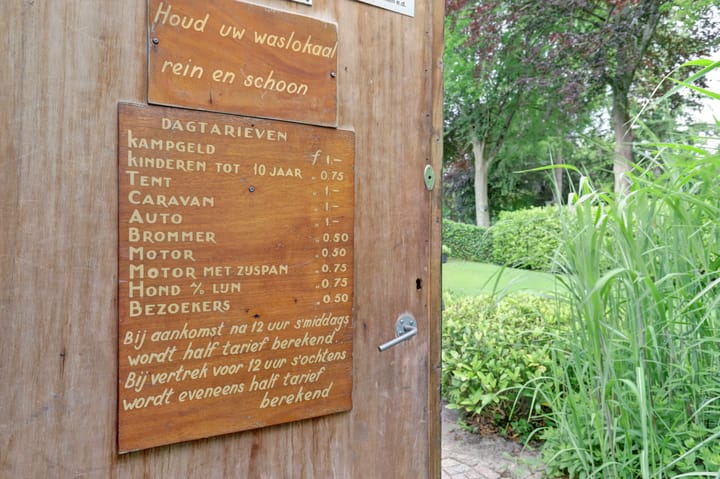 Houd uw waslokaal
rein en schoon
DAGTARIEVEN
KAMPGELD ƒ 1.—
KINDEREN TOT 10 JAAR „ 0.75
TENT „ 1.—
CARAVAN „ 1.—
AUTO „ 1.—
BROMMER „ 0.50
MOTOR „ 0.50
MOTOR MET ZIJSPAN „ 0.75
HOND % LIJN „ 0.75
BEZOEKERS „ 0.50
Bij aankomst na 12 uur s'middags
wordt half tarief berekend
Bij vertrek voor 12 uur s'ochtens
wordt eveneens half tarief
berekend